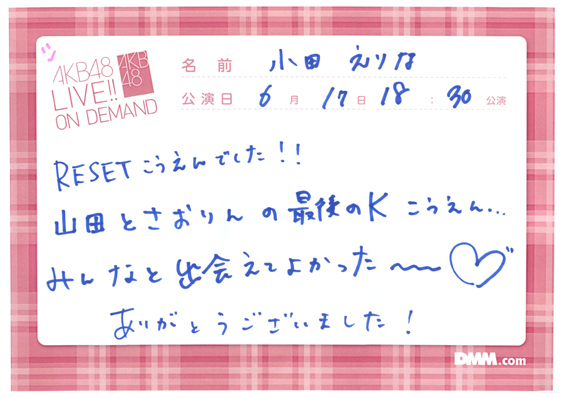 AKB48
LIVE!!
ON DEMAND
AKB
48
名前 小田 えりな
公演日 6月 17日 18:30 公演
RESET こうえんでした!!
山田とさおりんの最後のK こうえん...
みんなと出会えてよかった〜〜♡
ありがとうございました!
DMM.com